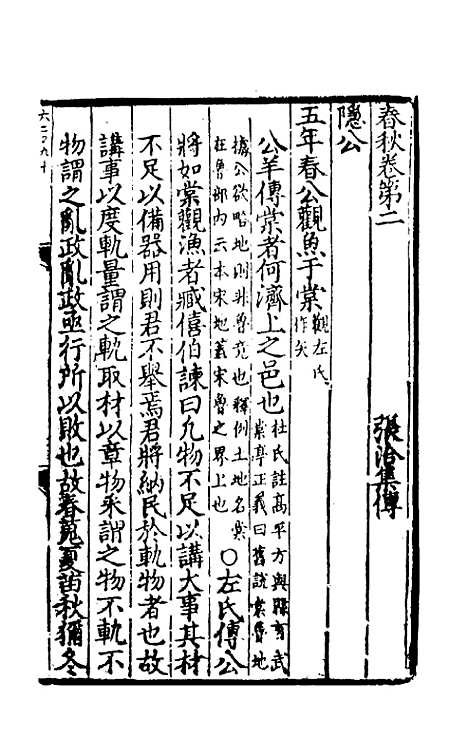 春秋卷第二 張洽集傳
隱公
五年春公觀魚于棠觀左氏作矢
公羊傳棠者何濟上之邑也杜氏註高平方與縣有武棠亭正義曰舊說棠魯地
據公欲略地則非魯竟也釋例土地名棠在魯部内云本宋地蓋宋魯之界上也○左氏傳公
將如棠觀漁者臧僖伯諫曰凡物不足以講大事其材
不足以備器用則君不舉焉君將納民於軌物者也故
講事以度軌量謂之軌取材以章物采謂之物不軌不
物謂之亂政亂政亟行所以敗也故春蒐夏苗秋獮冬